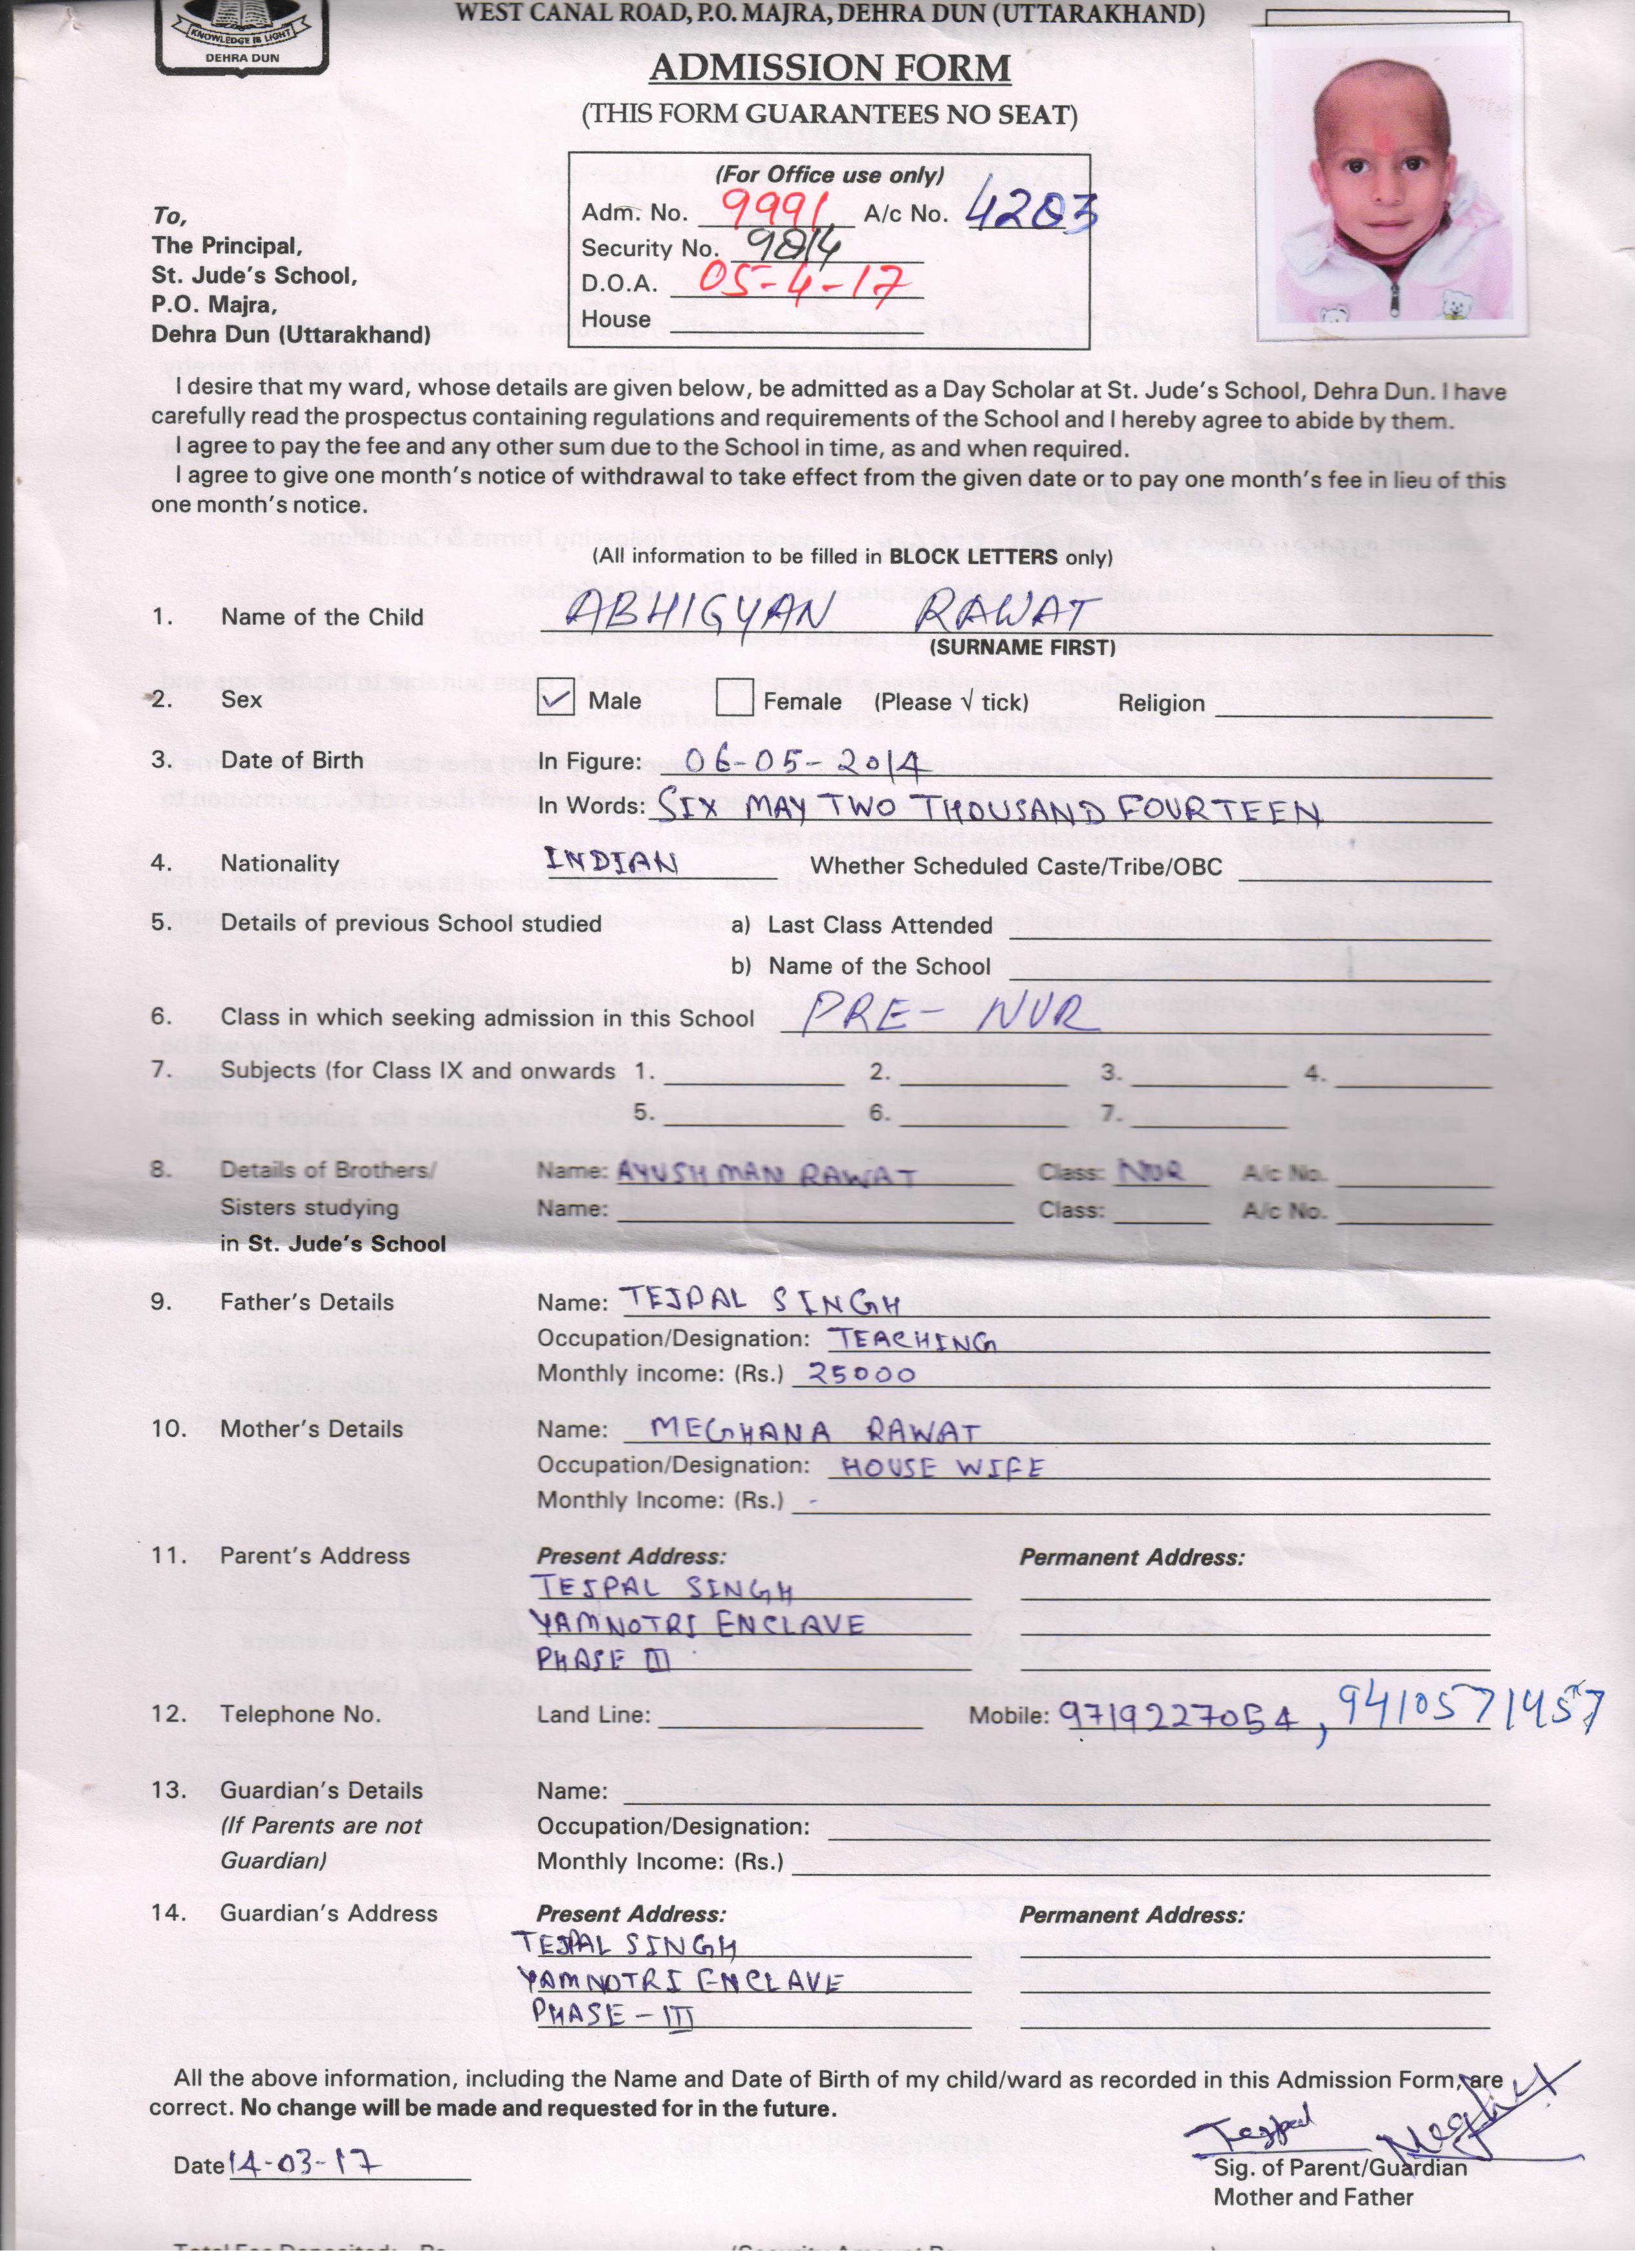 WEST CANAL ROAD, P.O. MAJRA, DEHRA DUN (UTTARAKHAND)
KNOWLEDGE IS LIGHT
DEHRA DUN
ADMISSION FORM
(THIS FORM GUARANTEES NO SEAT)
(For Office use only)
Adm. No. 9991 A/c No. 4203
Security No. 9814
D.O.A. 05-4-17
House
To,
The Principal,
St. Jude's School,
P.O. Majra,
Dehra Dun (Uttarakhand)
I desire that my ward, whose details are given below, be admitted as a Day Scholar at St. Jude's School, Dehra Dun. I have
carefully read the prospectus containing regulations and requirements of the School and I hereby agree to abide by them.
I agree to pay the fee and any other sum due to the School in time, as and when required.
I agree to give one month's notice of withdrawal to take effect from the given date or to pay one month's fee in lieu of this
one month's notice.
(All information to be filled in BLOCK LETTERS only)
1. Name of the Child ABHIGYAN RAWAT
(SURNAME FIRST)
2. Sex ✓ Male Female (Please √ tick) Religion
3. Date of Birth In Figure: 06-05-2014
In Words: SIX MAY TWO THOUSAND FOURTEEN
4. Nationality INDIAN Whether Scheduled Caste/Tribe/OBC
5. Details of previous School studied a) Last Class Attended
b) Name of the School
6. Class in which seeking admission in this School PRE- NUR
7. Subjects (for Class IX and onwards 1. 2. 3. 4.
5. 6. 7.
8. Details of Brothers/ Name: AYUSHMAN RAWAT Class: NUR A/c No.
Sisters studying Name: Class: A/c No.
in St. Jude's School
9. Father's Details Name: TEJPAL SINGH
Occupation/Designation: TEACHING
Monthly income: (Rs.) 25000
10. Mother's Details Name: MEGHANA RAWAT
Occupation/Designation: HOUSE WIFE
Monthly Income: (Rs.) -
11. Parent's Address Present Address: Permanent Address:
TEJPAL SINGH
YAMNOTRI ENCLAVE
PHASE III
12. Telephone No. Land Line: Mobile: 9719227054, 9410571457
13. Guardian's Details Name:
(If Parents are not Occupation/Designation:
Guardian) Monthly Income: (Rs.)
14. Guardian's Address Present Address: Permanent Address:
TEJPAL SINGH
YAMNOTRI ENCLAVE
PHASE - III
All the above information, including the Name and Date of Birth of my child/ward as recorded in this Admission Form, are
correct. No change will be made and requested for in the future.
Tejpal
Date 14-03-17
Sig. of Parent/Guardian
Mother and Father